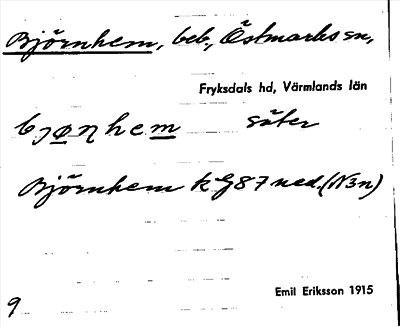 Björnhem, beb., Östmarks sn,
Fryksdals hd, Värmlands län
bjøŋhem säter
Björnhem kG87ned.(N3n)
Emil Eriksson 1915
9